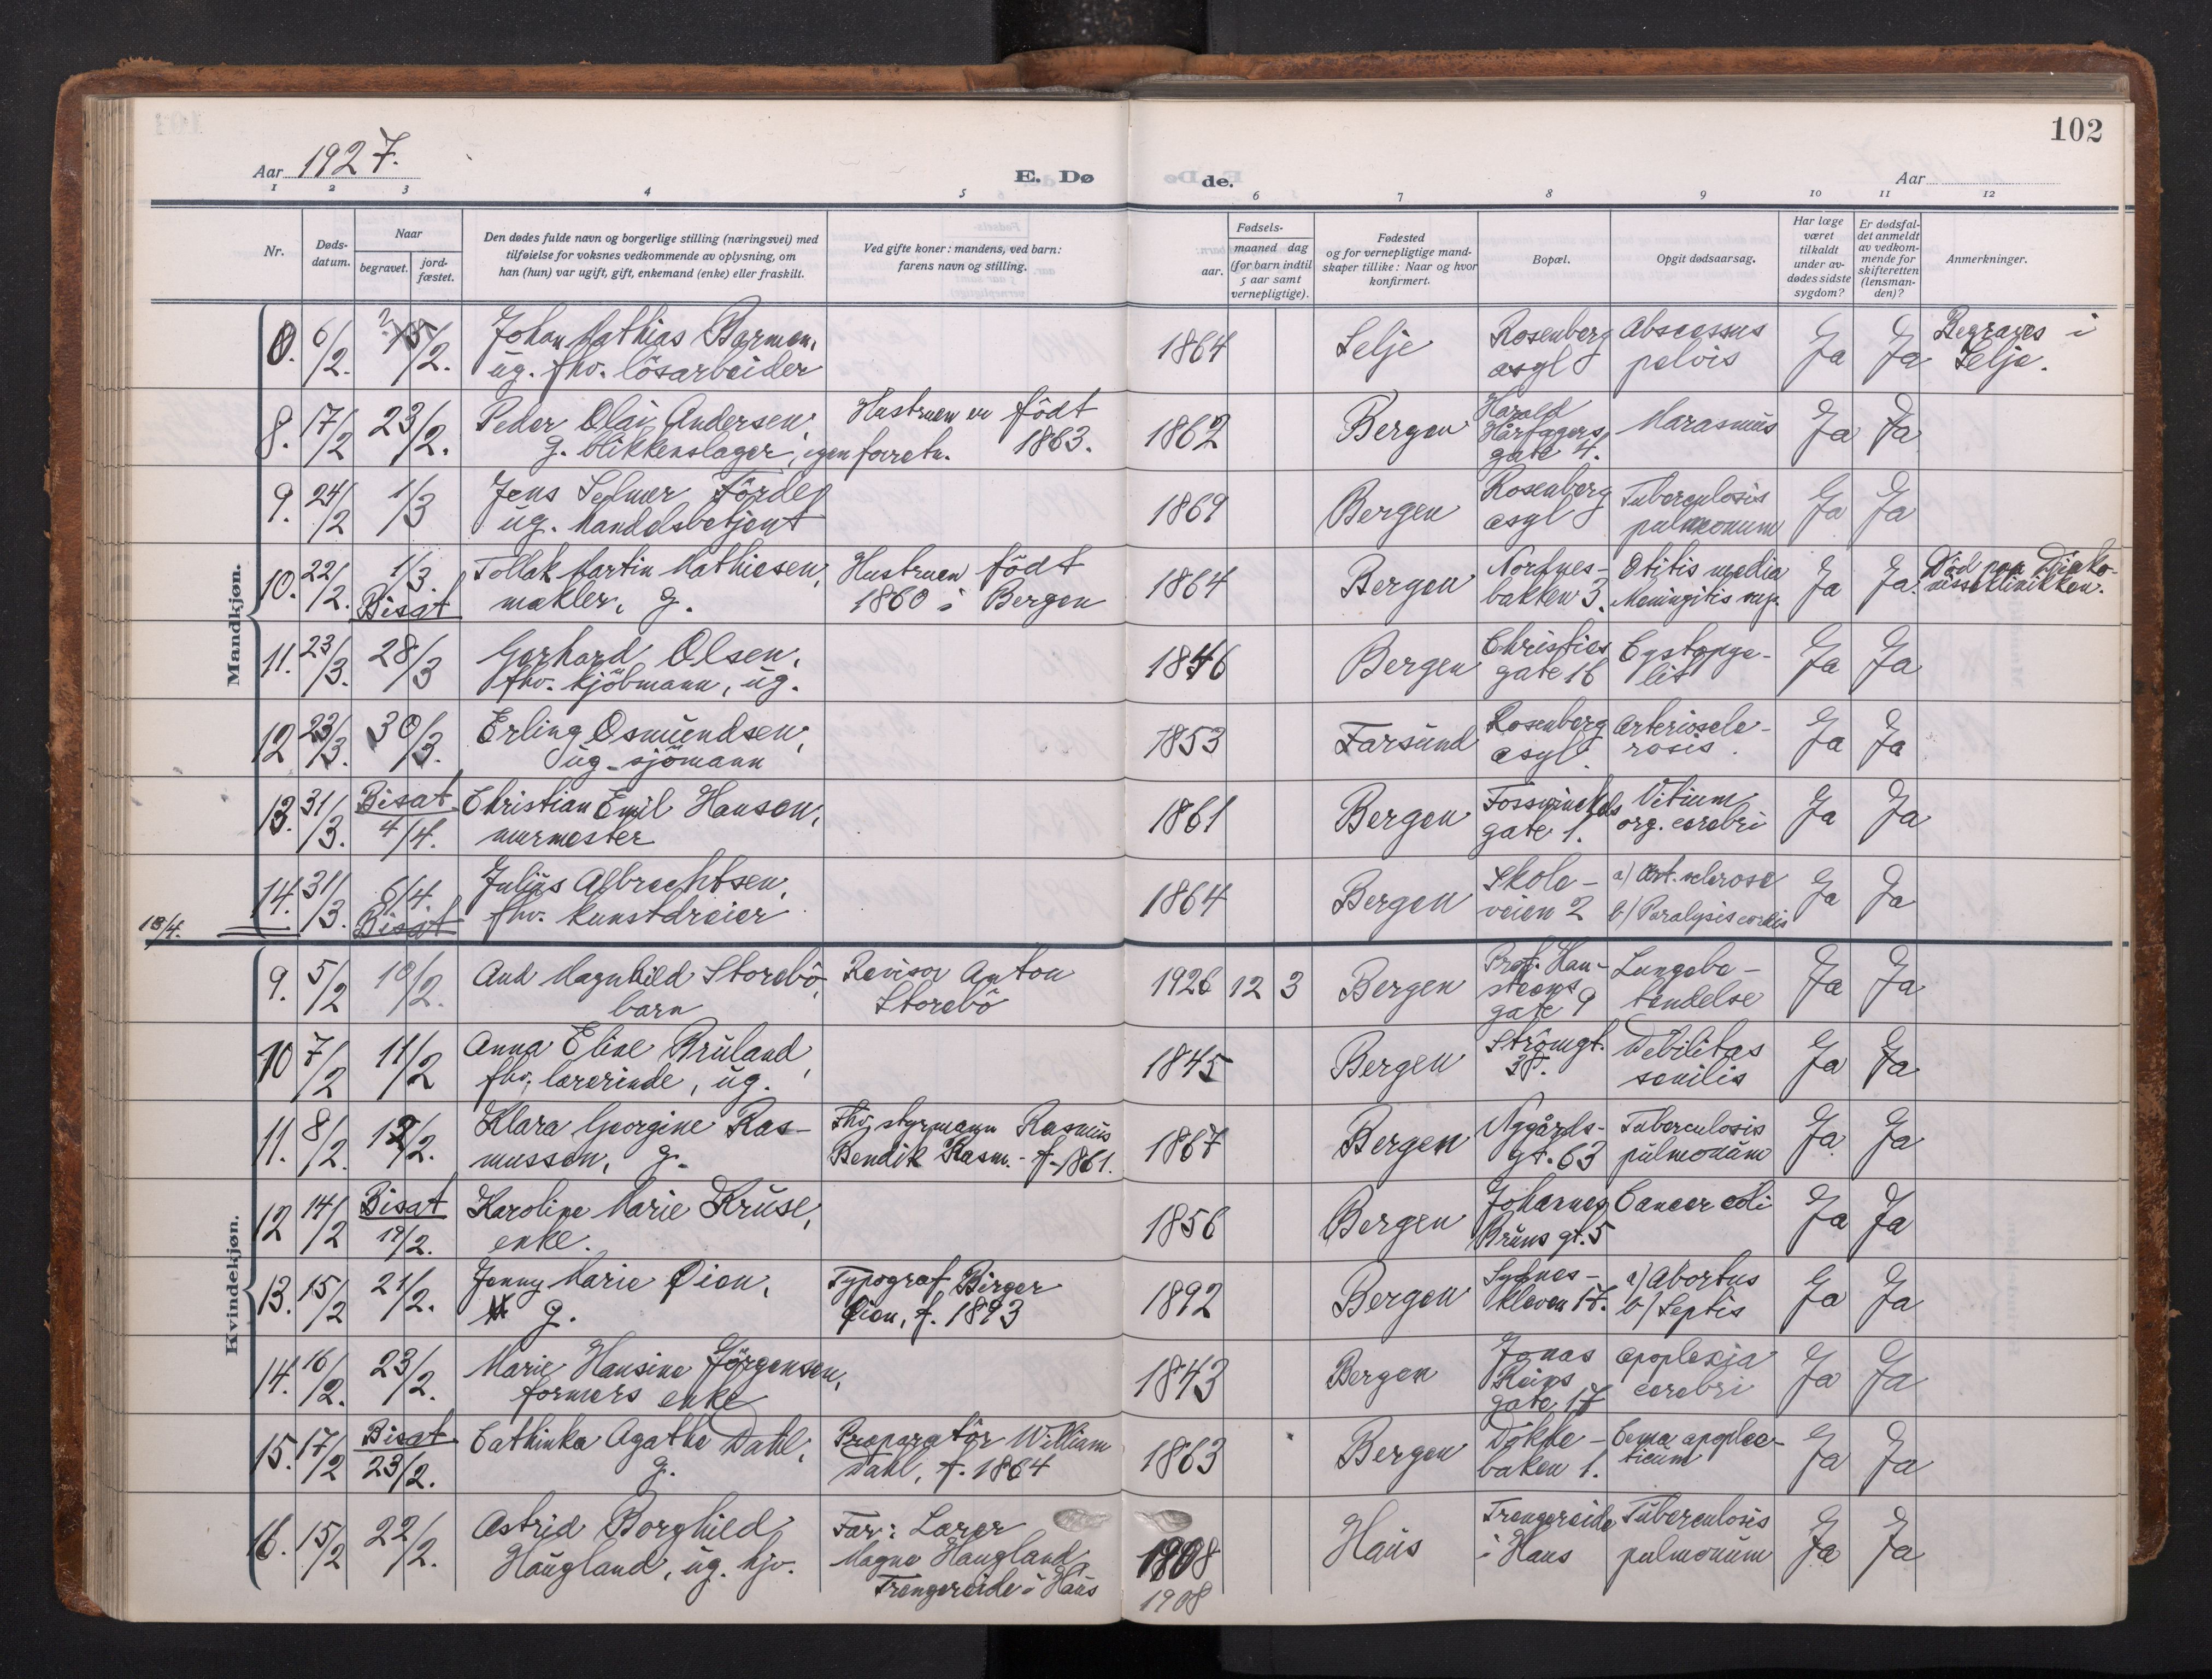 102
Aar 1927.
E. Dø de.
Aar
1 2 3 4 5 6 7 8 9 10 11 12
Nr.
Døds-
datum.
Naar
begravet.
jord-
fæstet.
Den dødes fulde navn og borgerlige stilling (næringsvei) med
tilføielse for voksnes vedkommende av oplysning, om
han (hun) var ugift, gift, enkemand (enke) eller fraskilt.
Ved gifte koner: mandens, ved barn:
farens navn og stilling.
Fødsels-
aar.
maaned dag
(for barn indtil
5 aar samt
vernepligtige).
Fødested
og for vernepligtige mand-
skaper tillike: Naar og hvor
konfirmert.
Bopæl.
Opgit dødsaarsag.
Har læge
været
tilkaldt
under av-
dødes sidste
sygdom?
Er dødsfal-
det anmeldt
av vedkom-
mende for
skifteretten
(lensman-
den)?
Anmerkninger.
Mandkjøn.
0. 6/2. Johan Mathias Barmen, 1864 Selje Rosenberg Abscessus Ja Ja Begraves i
ug. fhv. lösarbeider asyl pelvis Selje.
8. 17/2 23/2. Peder Olai Andersen, Hustruen er födt 1862 Bergen Harald Marasmus Ja Ja
g. blikkenslager, egen forretn. 1863. Hårfagers
gate 4.
9. 24/2 1/3 Jens Selmer Förde, 1869 Bergen Rosenberg Tuberculosis Ja Ja
ug. handelsbetjent asyl pulmonum
10. 22/2. 1/3. Tollak Martin Mathiesen, Hustruen födt 1864 Bergen Nordnes- Otitis media Ja Ja. Död paa Diako-
Bisat makler, g. 1860 i Bergen bakken 3. Meningitis nisseklinikken.
11. 23/3. 28/3 Gerhard Olsen, 1846 Bergen Christies Cystopye- Ja Ja
fhv. kjöbmann, ug. gate 16 lit
12 23/3. 30/3. Erling Osmundsen, 1853 Farsund Rosenberg Arteriosele- Ja Ja
ug. sjömann asyl. rosis.
13. 31/3. Bisat Christian Emil Hansen, 1861 Bergen Fosswinckels Vitium Ja Ja
4/4. murmester gate 1. org. cerebri
14. 31/3. 6/4. Julius Albrechtsen, 1864 Bergen Skole- a) Art. sclerose Ja Ja
18/4. Bisat fhv. kunstdreier veien 2 b) Paralysis cordis
Kvindekjøn.
9. 5/2 10/2. Aud Magnhild Storebö, Revisor Anton 1926 12 3 Bergen Prof. Han- Lungebe- Ja Ja
barn Storebö steens tendelse
gate 9
10 7/2 11/2 Anna Eline Bruland, 1845 Bergen Strömgt. Debilitas Ja Ja
fhv. lærerinde, ug. 38. senilis
11. 8/2. 12/2. Klara Georgine Ras- Fhv. styrmann Rasmus 1867 Bergen Nygårds- Tuberculosis Ja Ja
mussen, g. Bendik Rasm. - f. 1861. gt. 63 pulmonum
12 14/2 Bisat Karoline Marie Kruse, 1856 Bergen Johannes Cancer coli Ja Ja
17/2. enke. Bruns gt. 5
13. 15/2 21/2. Jenny Marie Øien, Typograf Birger 1892 Bergen Sydnes- a) Abortus Ja Ja
g. Øien, f. 1893 kleven 17. b) Septis
14. 16/2. 23/2. Marie Hansine Jörgensen, 1843 Bergen Jonas Apoplexia Ja Ja
formers enke Reins cerebri
gate 17
15. 17/2 Bisat Cathinka Agathe Dahl, Preparatör William 1863 Bergen Dokke- Coma apoplec- Ja Ja
23/2. g. Dahl, f. 1864 baken 1. ticum
16. 15/2 22/2. Astrid Borghild Far: Lærer 1908 Haus Trengereide Tuberculosis Ja Ja
Haugland, ug. hjv. Magne Haugland, i Haus pulmonum
Trengereide i Haus
1908